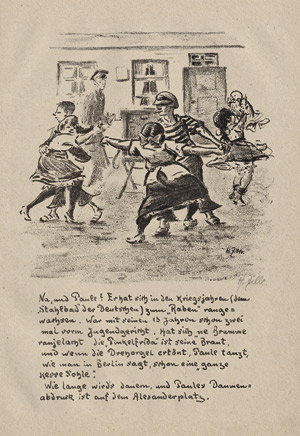 H. Zille
H. Zille
Na, und Paule! Er hat sich in den Kriegsjahren (dem
Stahlbad des Deutschen) zum "Raben" range-
wachsen. War mit seinen 13 Jahren schon zwei
mal vorm Jugendgericht. Hat sich ne Bramme
ranjelacht die "Punkelfrida" ist seine Braut,
und wenn die Drehorgel ertönt, Paule tanzt,
wie man in Berlin sagt, schon eine "ganze
kesse Sohle!"
Wie lange wird's dauern, und Paules Daumen-
abdruck ist auf dem Alexanderplatz.